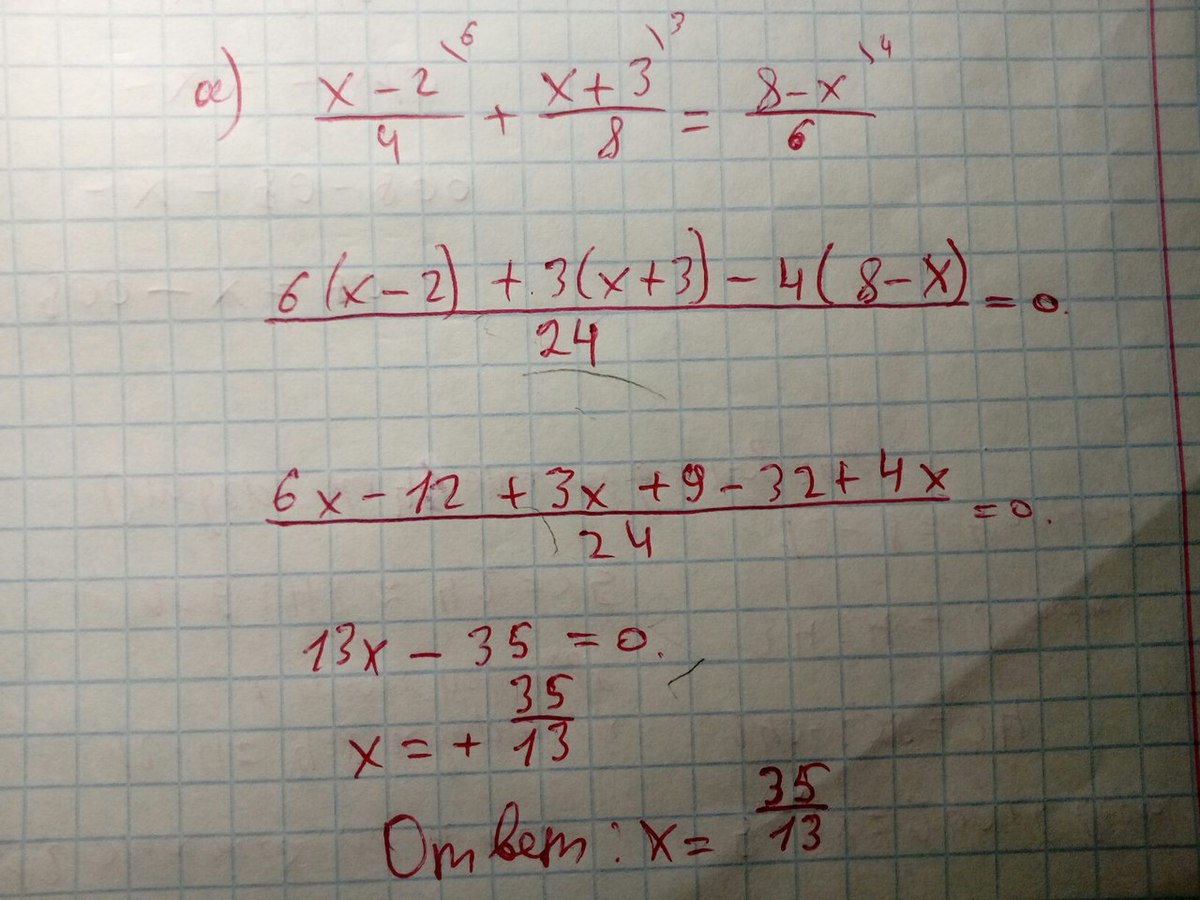 а) (x-2)/4 \6 + (x+3)/8 \3 = (8-x)/6 \4
(6(x-2) + 3(x+3) - 4(8-x))/24 = 0.
(6x - 12 + 3x + 9 - 32 + 4x)/24 = 0.
13x - 35 = 0.
x = + 35/13
Ответ: x = 35/13